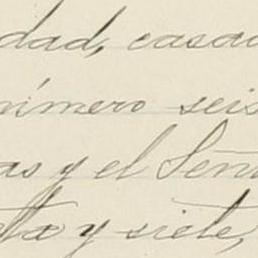 dad, casad
número seis
as y el Seño
ta y siete,